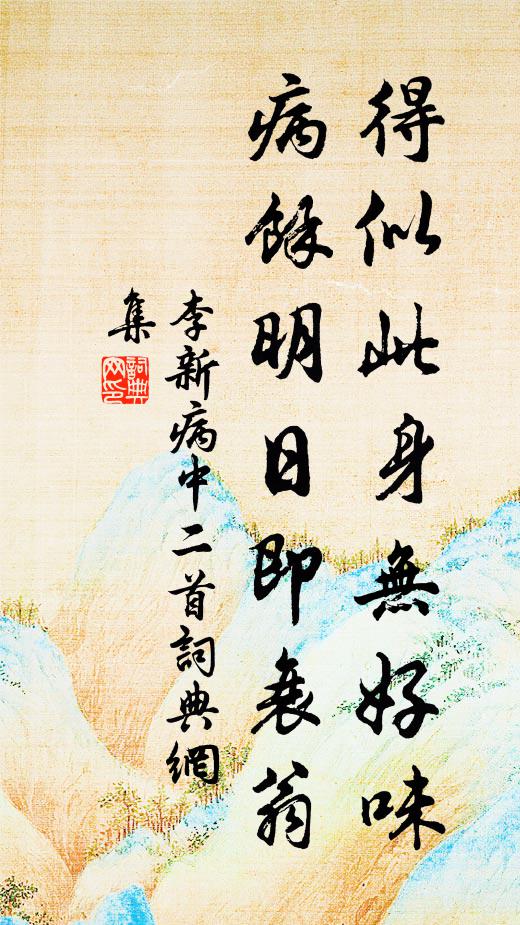 得似此身無好味
病餘明日即衰翁
李新病中二首詞典網
集
詞典
网印